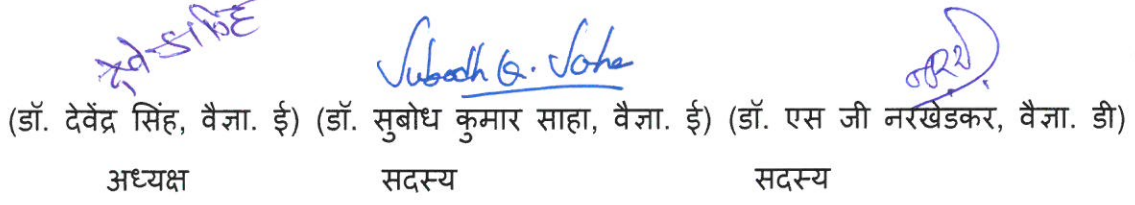 Subodh K. Saha
(डॉ. देवेंद्र सिंह, वैज्ञा. ई) (डॉ. सुबोध कुमार साहा, वैज्ञा. ई) (डॉ. एस जी नरखेडकर, वैज्ञा. डी)
अध्यक्ष सदस्य सदस्य